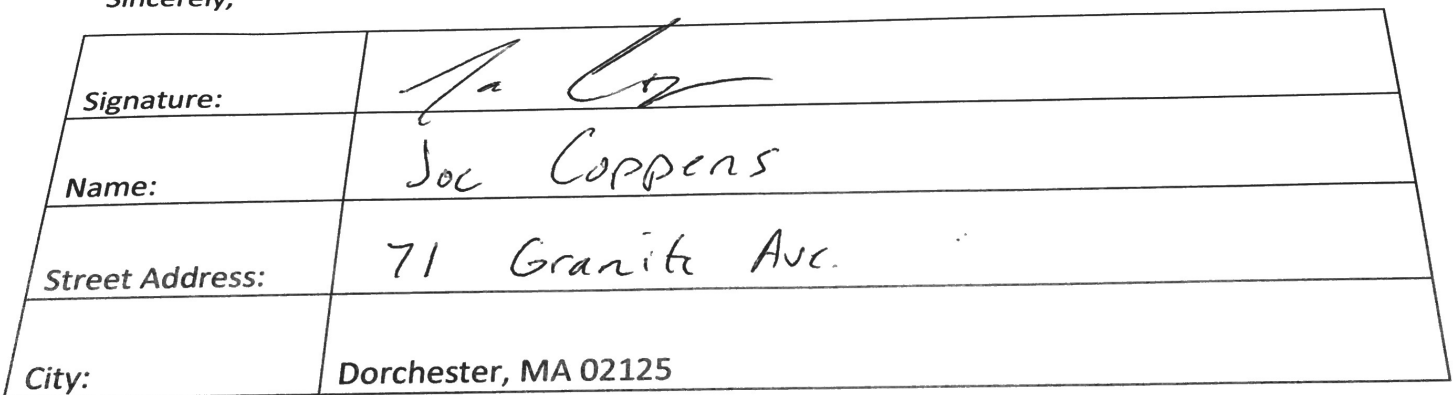 Sincerely,
Signature:
Name: Joe Coppens
Street Address: 71 Granite Ave.
City: Dorchester, MA 02125